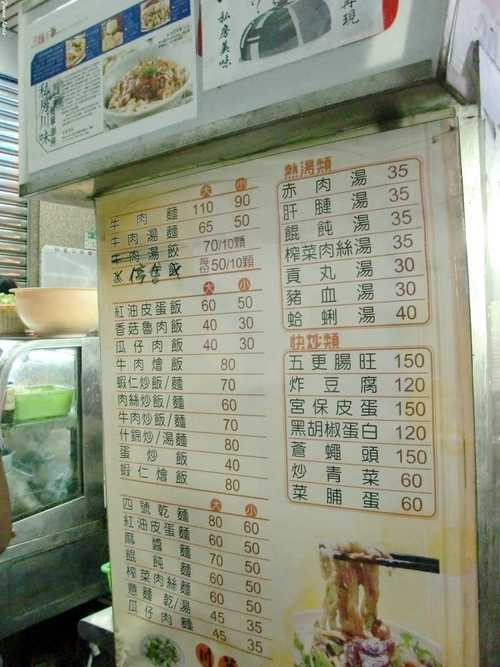 私房川味
私房美味
再現
大 小
牛肉麵 110 90
牛肉湯麵 65 50
牛肉湯餃 70/10顆
每份50/10顆
大 小
紅油皮蛋飯 60 50
香菇魯肉飯 40 30
瓜仔肉飯 40 30
牛肉燴飯 80
蝦仁炒飯/麵 70
肉絲炒飯/麵 60
牛肉炒飯/麵 70
什錦炒/湯麵 80
蛋炒飯 40
蝦仁燴飯 80
大 小
四號乾麵 80 60
紅油皮蛋麵 60 50
麻醬麵 60 50
餛飩麵 70 50
榨菜肉絲麵 60 50
意麵乾/湯 60 50
瓜仔肉麵 45 35
45 35
熱湯類
赤肉湯 35
肝腱湯 35
餛飩湯 35
榨菜肉絲湯 35
貢丸湯 30
豬血湯 30
蛤蜊湯 40
快炒類
五更腸旺 150
炸豆腐 120
宮保皮蛋 150
黑胡椒蛋白 120
蒼蠅頭 150
炒青菜 60
菜脯蛋 60